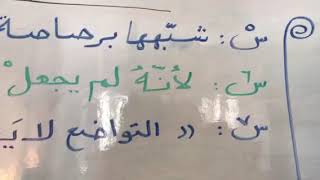 س١: شبّهها برصاصة
س٢: لأنّهُ لم يجعلْ
س٣: (( التواضع لا يَ